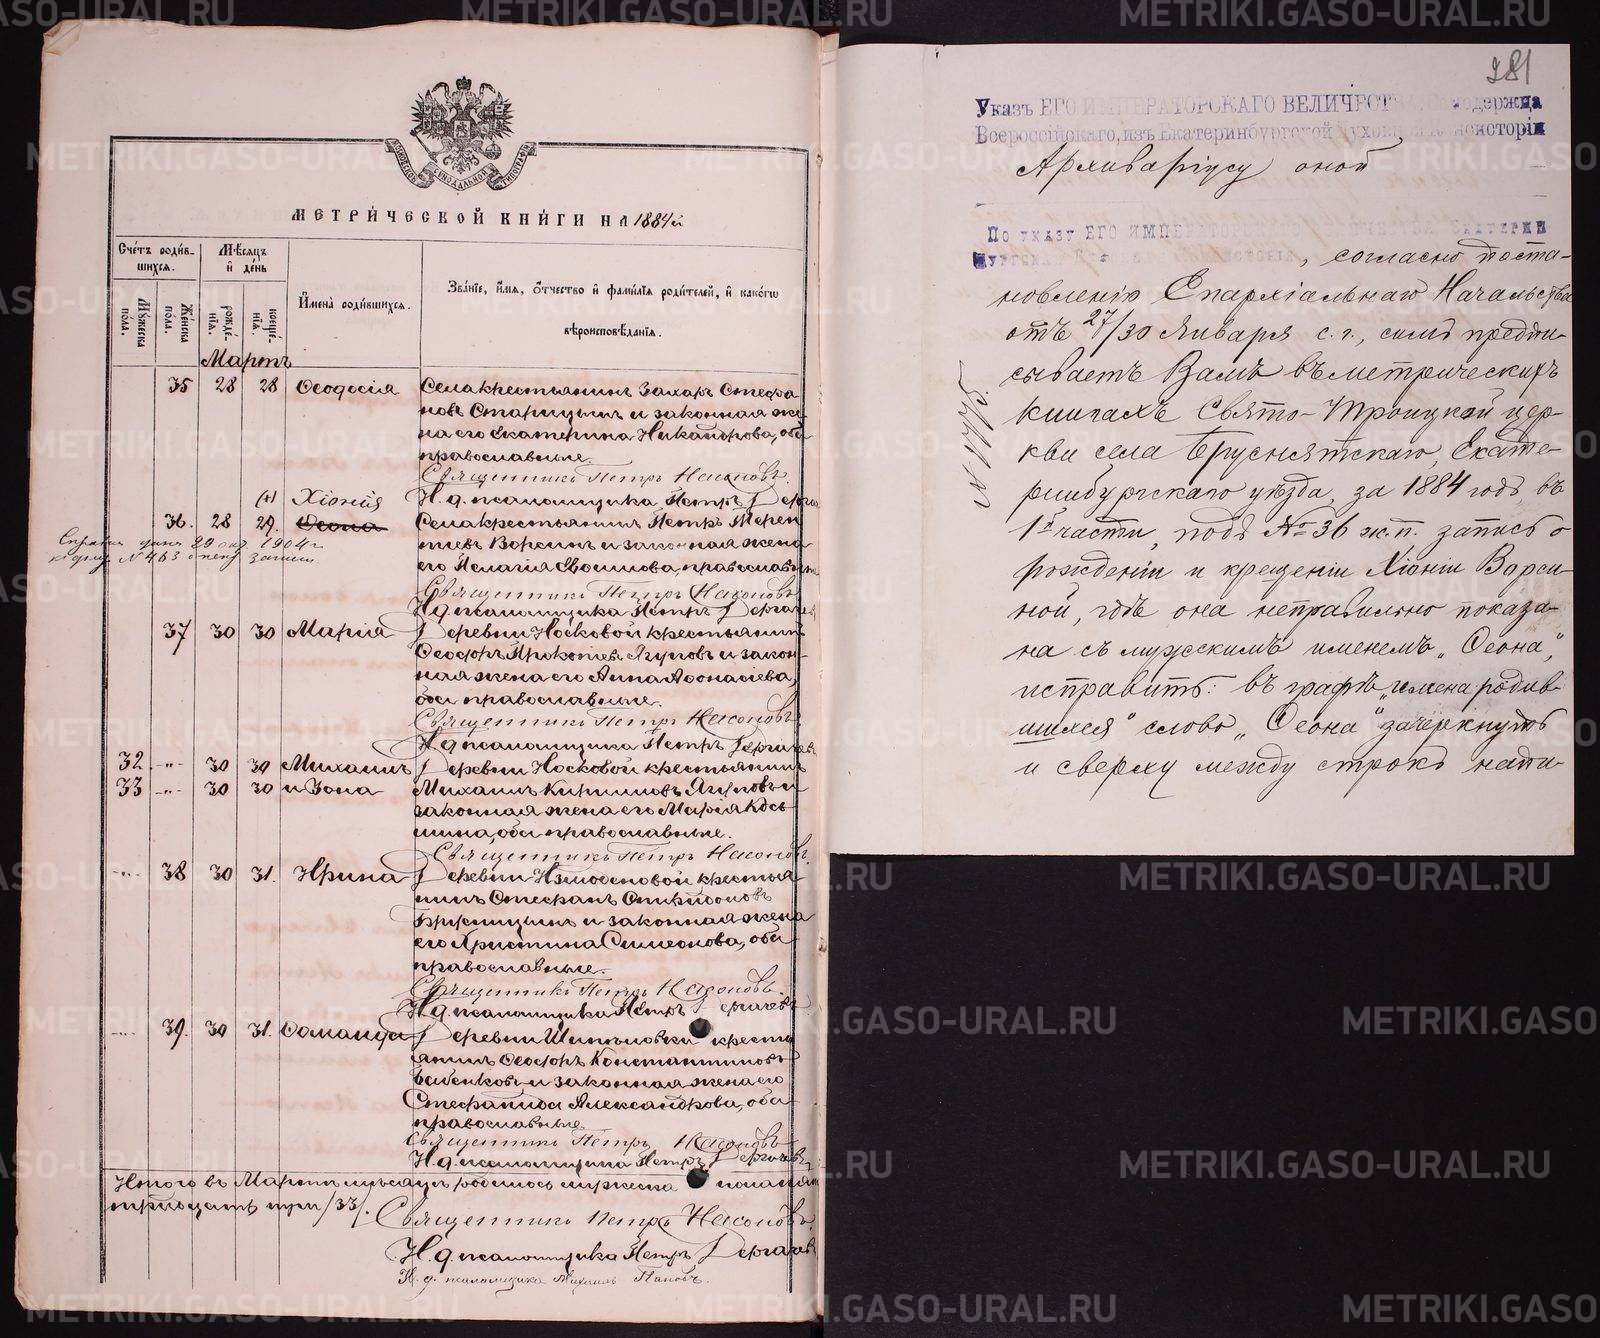 МЕТРИ́ЧЕСКОЙ КНИ́ГИ НА 1884й
Сче́тъ роди́в-
шихся.
Мѣсяцъ
и де́нь
Мꙋжеска
по́ла.
Же́нска
по́ла.
рожде́-
нія.
креще́-
нія.
Имена̀ роди́вшихся.
Зва́нїе, и́мя, о́тчество и фами́лїя роди́телей, и како́гѡ
вѣроисповѣ́данїя.
Мартъ
35 28 28 Ѳеодосія Села крестьянинъ Захаръ Стефа
новъ Старицынъ и законная же
на его Екатерина Никандрова, оба
православные.
Священникъ Петръ Насоновъ.
(х) Хіонія И. д. псаломщика Петръ Дерга
36. 28 29. Ѳеона Села крестьянинъ Петръ Терен
тіевъ Ворсинъ и законная жена
его Пелагія Евсимова, православные
Справка дана 29 1904 г.
№ 463 записи.
Священникъ Петръ Насоновъ
И. д. псаломщика Петръ Дергачев
37 30 30 Марія Деревни Носковой крестьянинъ
Ѳеодоръ Прокопіев Ягуповъ и закон-
ная жена его Анна Аѳонасіева,
оба православные.
Священникъ Петръ Насоновъ.
И. д. псаломщика Петръ Дергачев
32 -"- 30 30 Михаилъ Деревни Носковой крестьянинъ
33 -"- 30 30 и Зона Михаилъ Кирилловъ Ягуповъ и
законная жена его Марія Кось
мина, оба православные.
Священникъ Петръ Насоновъ.
38 30 31. Ирина Деревни Измоденовой крестья
нинъ Стефанъ Спиридоновъ
Брусницынъ и законная жена
его Христина Симеонова, оба
православные.
Священникъ Петръ Насоновъ.
И. д. псаломщика Петръ Дергачевъ
39. 30 31. Ѳоманда Деревни Шипѣловки кресть
янинъ Ѳеодоръ Константиновъ
Бабенковъ и законная жена его
Стефанида Александрова, оба
православные
Священникъ Петръ Насоновъ
И. д. псаломщика Петръ Дергачевъ
Итого въ Мартѣ мѣсяцѣ родилось мужеска пола
тридцать три /33/. Священникъ Петръ Насоновъ.
И. д. псаломщика Петръ Дергачев
И. д. псаломщика Михаилъ Поповъ.
281
Указъ ЕГО ИМПЕРАТОРСКАГО ВЕЛИЧЕСТВА Самодержца
Всероссійскаго, изъ Екатеринбургской Духовной Консисторіи
Архиваріусу оной
По указу ЕГО ИМПЕРАТОРСКАГО ВЕЛИЧЕСТВА Екатерин
бургская Духовная Консисторія, согласно поста-
новленію Епархіальнаго Начальства
отъ 27/30 Января с. г., симъ предпи-
сываетъ Вамъ въ метрическихъ
книгахъ Свято-Троицкой цер-
кви села Бруснятскаго, Екате-
ринбургскаго уѣзда, за 1884 годъ въ
1й части, подъ № 36 ж.п. запись о
рожденіи и крещеніи Хіоніи Ворси-
ной, гдѣ она неправильно показа-
на съ мужскимъ именемъ „Ѳеона“,
исправить: въ графѣ „имена родив-
шихся“ слово „Ѳеона“ зачеркнуть
и сверху между строкъ напи-